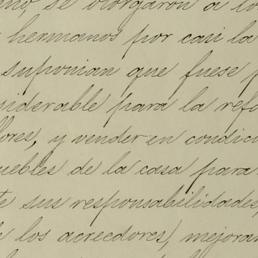 no, se otorgaron a lo
hermanos por casi la
suponian que fuese p
siderable para la refo
lores, y vender en condici
uebles de la casa para
te sus responsabilidades,
e los acreedores, mejoran